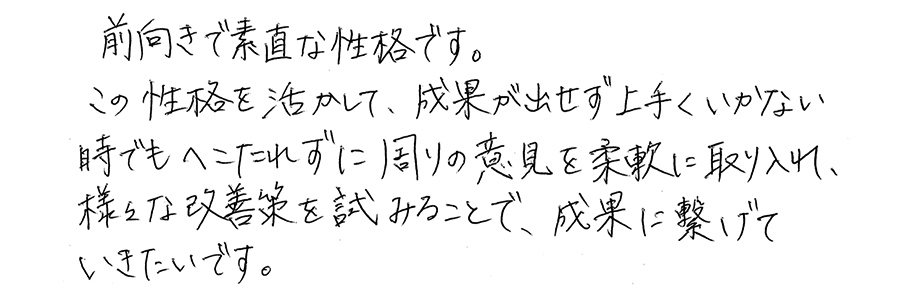 前向きで素直な性格です。
この性格を活かして、成果が出せず上手くいかない
時でもへこたれずに周りの意見を柔軟に取り入れ、
様々な改善策を試みることで、成果に繋げて
いきたいです。